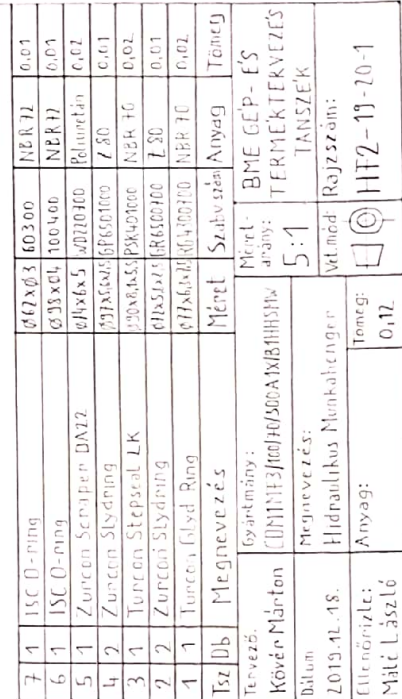 7 1 ISC O-ring Ø62xØ3 60300 NBR 72 0,01
6 1 ISC O-ring 100400 NBR 72 0,01
5 1 Zurcon Scraper DA22 WD220700 Poliuretán 0,02
4 2 Zurcon Slydring GP6501000 Z 80 0,01
3 1 Turcon Stepseal LK PSK401000 NBR 70 0,02
2 2 Zurcon Slydring GR6500700 Z 80 0,01
1 1 Turcon Glyd Ring NBR 70 0,02
Tsz Db Megnevezés Méret Szabv. szám Anyag Tömeg
Tervező:
Kövér Márton
Gyártmány:
CDM1MF3/100/70/500A1X/B1HHSMW
Méret-
arány:
5:1
BME GÉP- ÉS
TERMÉKTERVEZÉS
TANSZÉK
Dátum
2019.12.18.
Megnevezés:
Hidraulikus Munkahenger
Vet.mód:
Rajzszám:
HF2-19-20-1
Ellenőrizte:
Máté László
Anyag:
Tömeg:
0,12